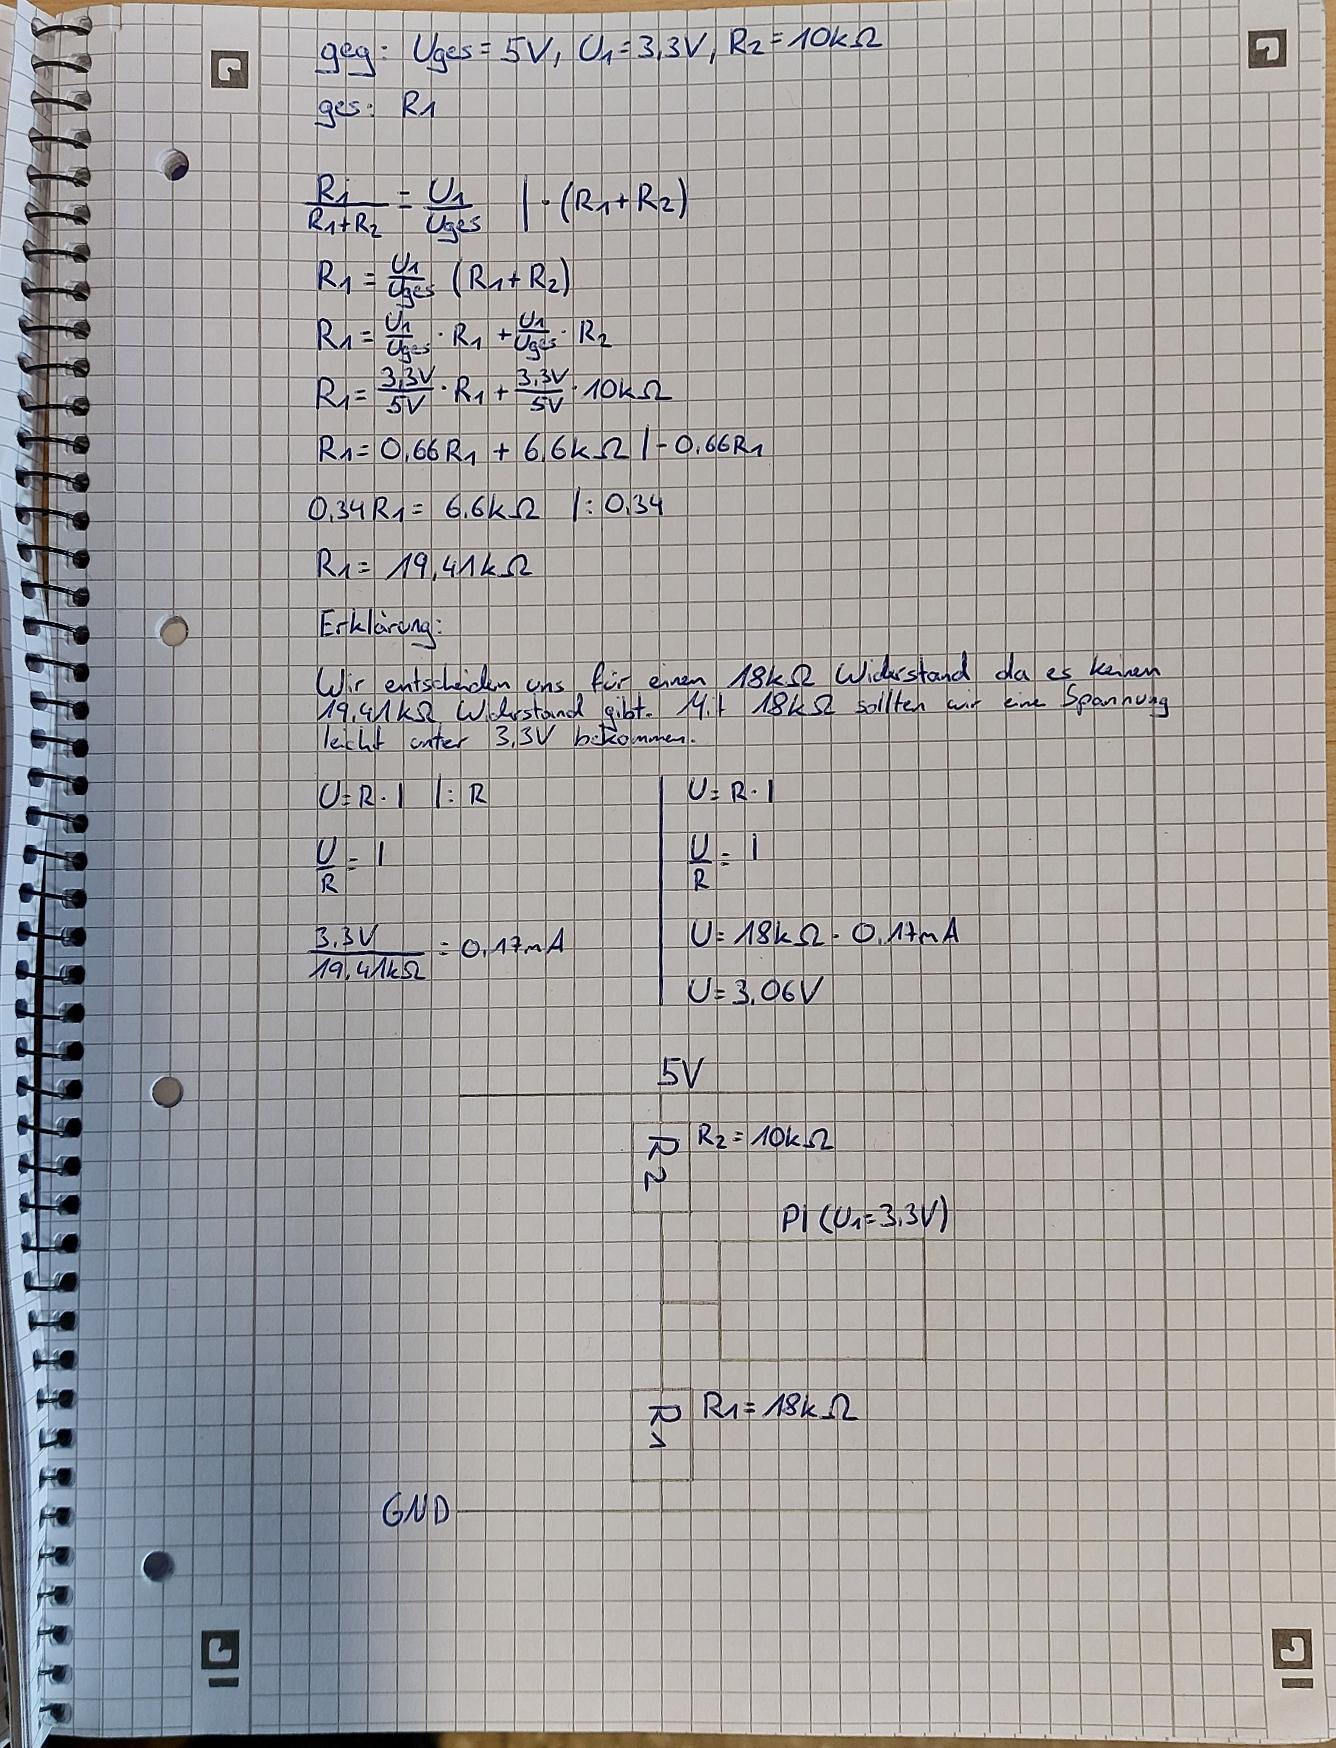 geg: Uges = 5V, U1 = 3,3V, R2 = 10kΩ
ges: R1
R1/(R1+R2) = U1/Uges | · (R1+R2)
R1 = U1/Uges (R1+R2)
R1 = U1/Uges · R1 + U1/Uges · R2
R1 = 3,3V/5V · R1 + 3,3V/5V · 10kΩ
R1 = 0,66R1 + 6,6kΩ | - 0,66R1
0,34R1 = 6,6kΩ | : 0,34
R1 = 19,41kΩ
Erklärung:
Wir entscheiden uns für einen 18kΩ Widerstand da es keinen
19,41kΩ Widerstand gibt. Mit 18kΩ sollten wir eine Spannung
leicht unter 3,3V bekommen.
U = R · I | : R
U/R = I
3,3V/19,41kΩ = 0,17mA
U = R · I
U/R = I
U = 18kΩ · 0,17mA
U = 3,06V
5V
R2 R2 = 10kΩ
PI (U1 = 3,3V)
R1 R1 = 18kΩ
GND